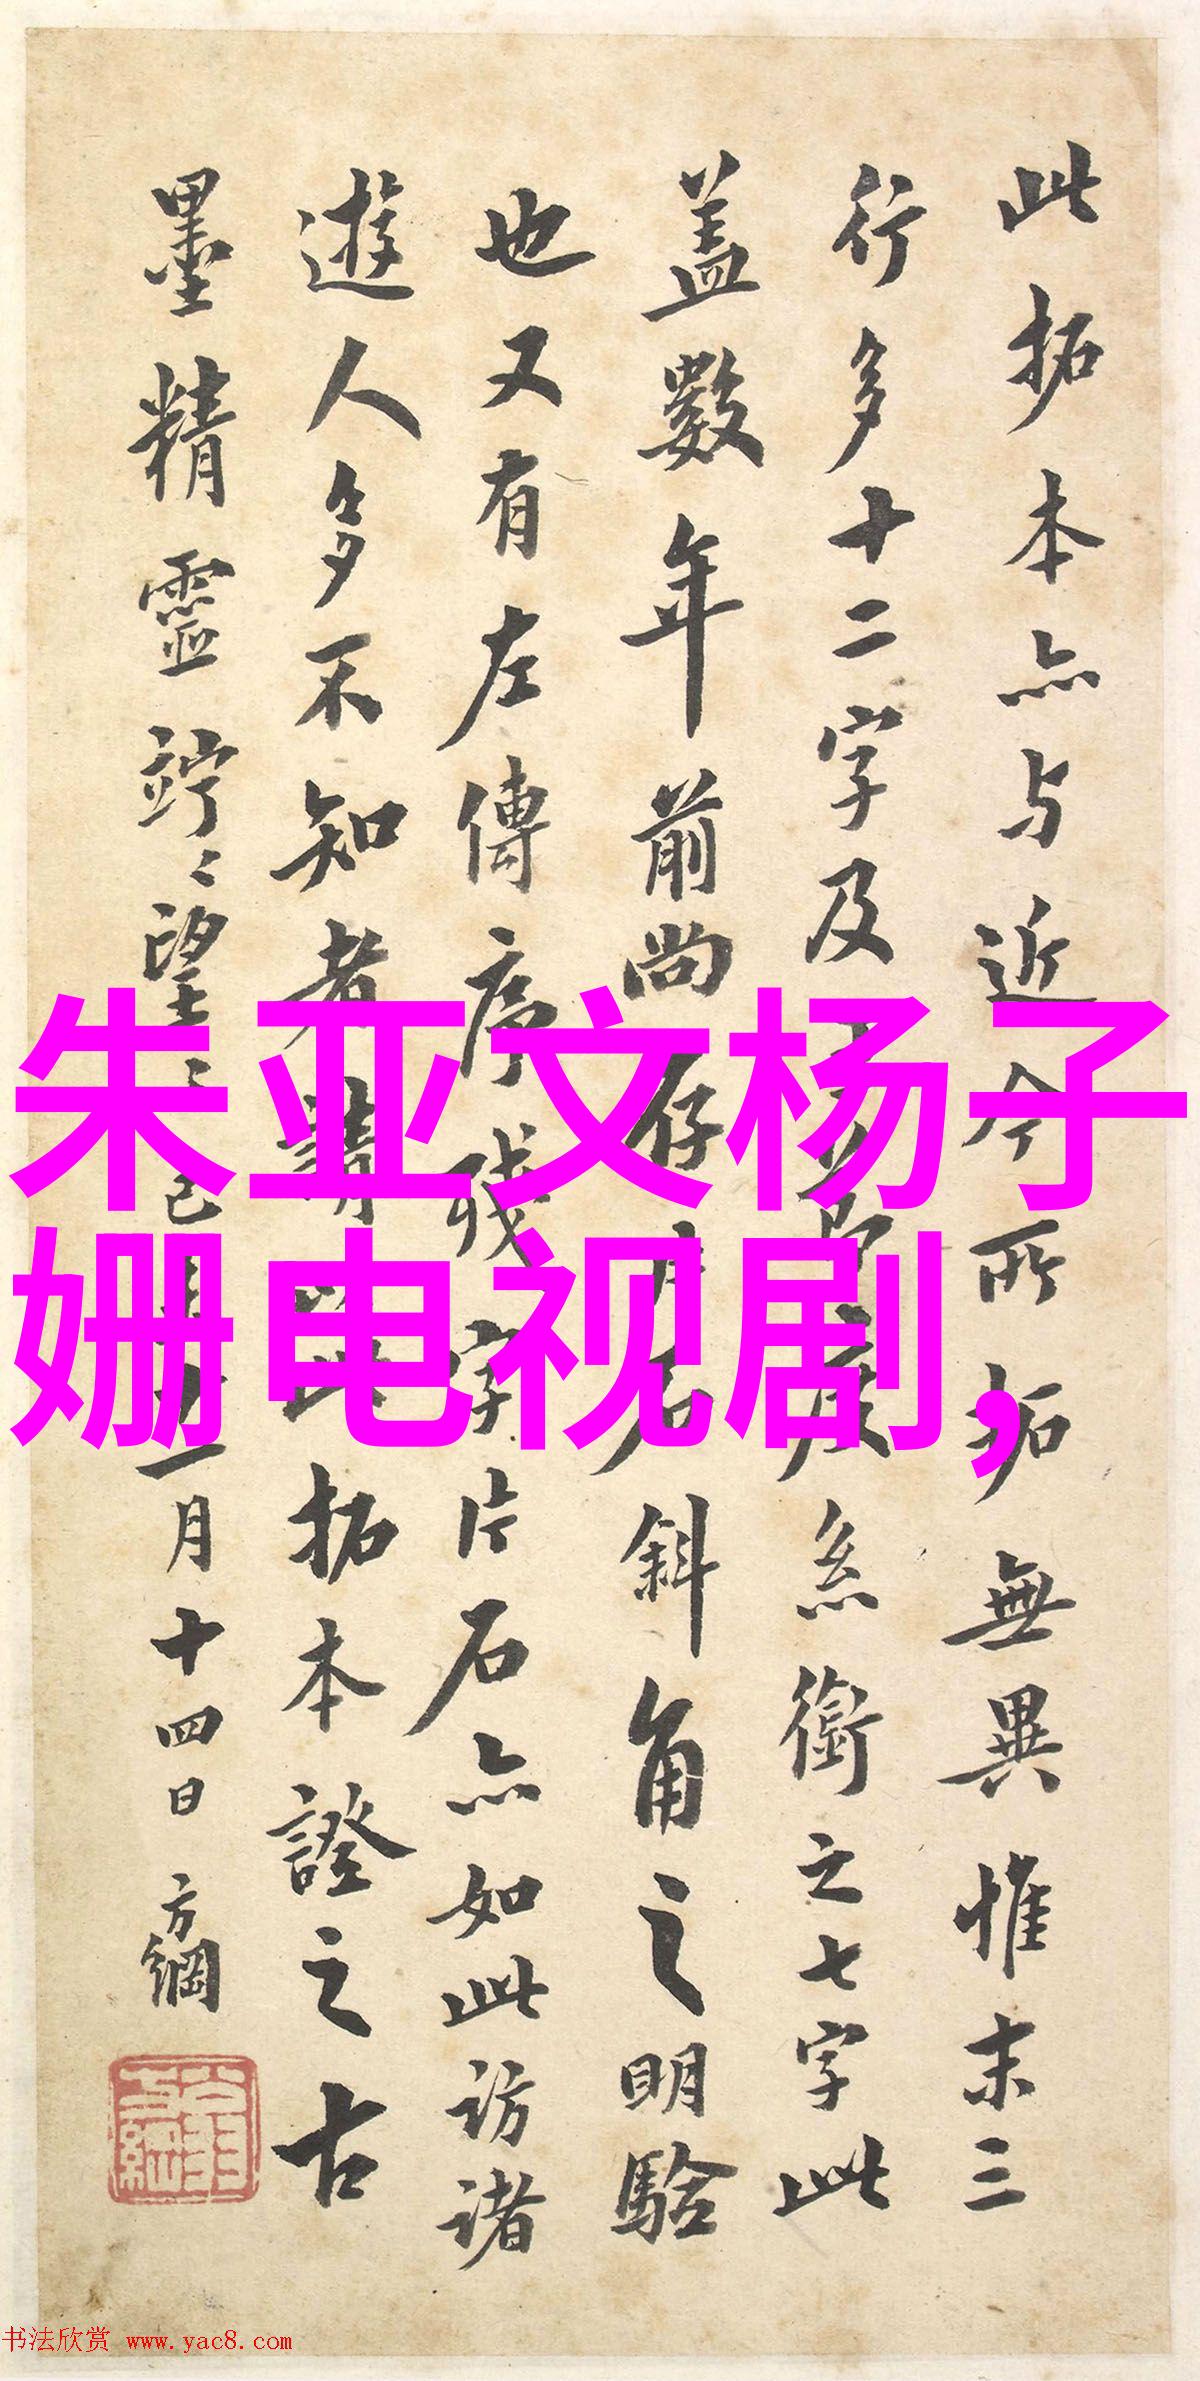 此拓本亦与近今所拓無異惟末三
行多十二字及
糸銜之七字此
蓋數年前尚存
石斜角之明驗
也又有左傳序殘字片石亦如此訪諸
遊人多不知者
拓本證之古
墨精靈竚〻望
月十四日方綱
朱亚文杨子
姗电视剧,
书法欣赏 www.yac8.com